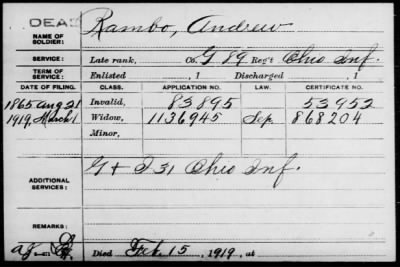 DEAD
NAME OF SOLDIER: Rambo, Andrew
SERVICE: Late rank, Co. G 89 Reg't Ohio Inf.
TERM OF SERVICE: Enlisted , 1 Discharged , 1
DATE OF FILING. CLASS. APPLICATION NO. LAW. CERTIFICATE NO.
1865 Aug 21 Invalid, 83895 53952
1919, March 1 Widow, 1136945 Sep. 868204
Minor,
ADDITIONAL SERVICES: G + I 31 Ohio Inf.
REMARKS:
Died Feb. 15, 1919, at